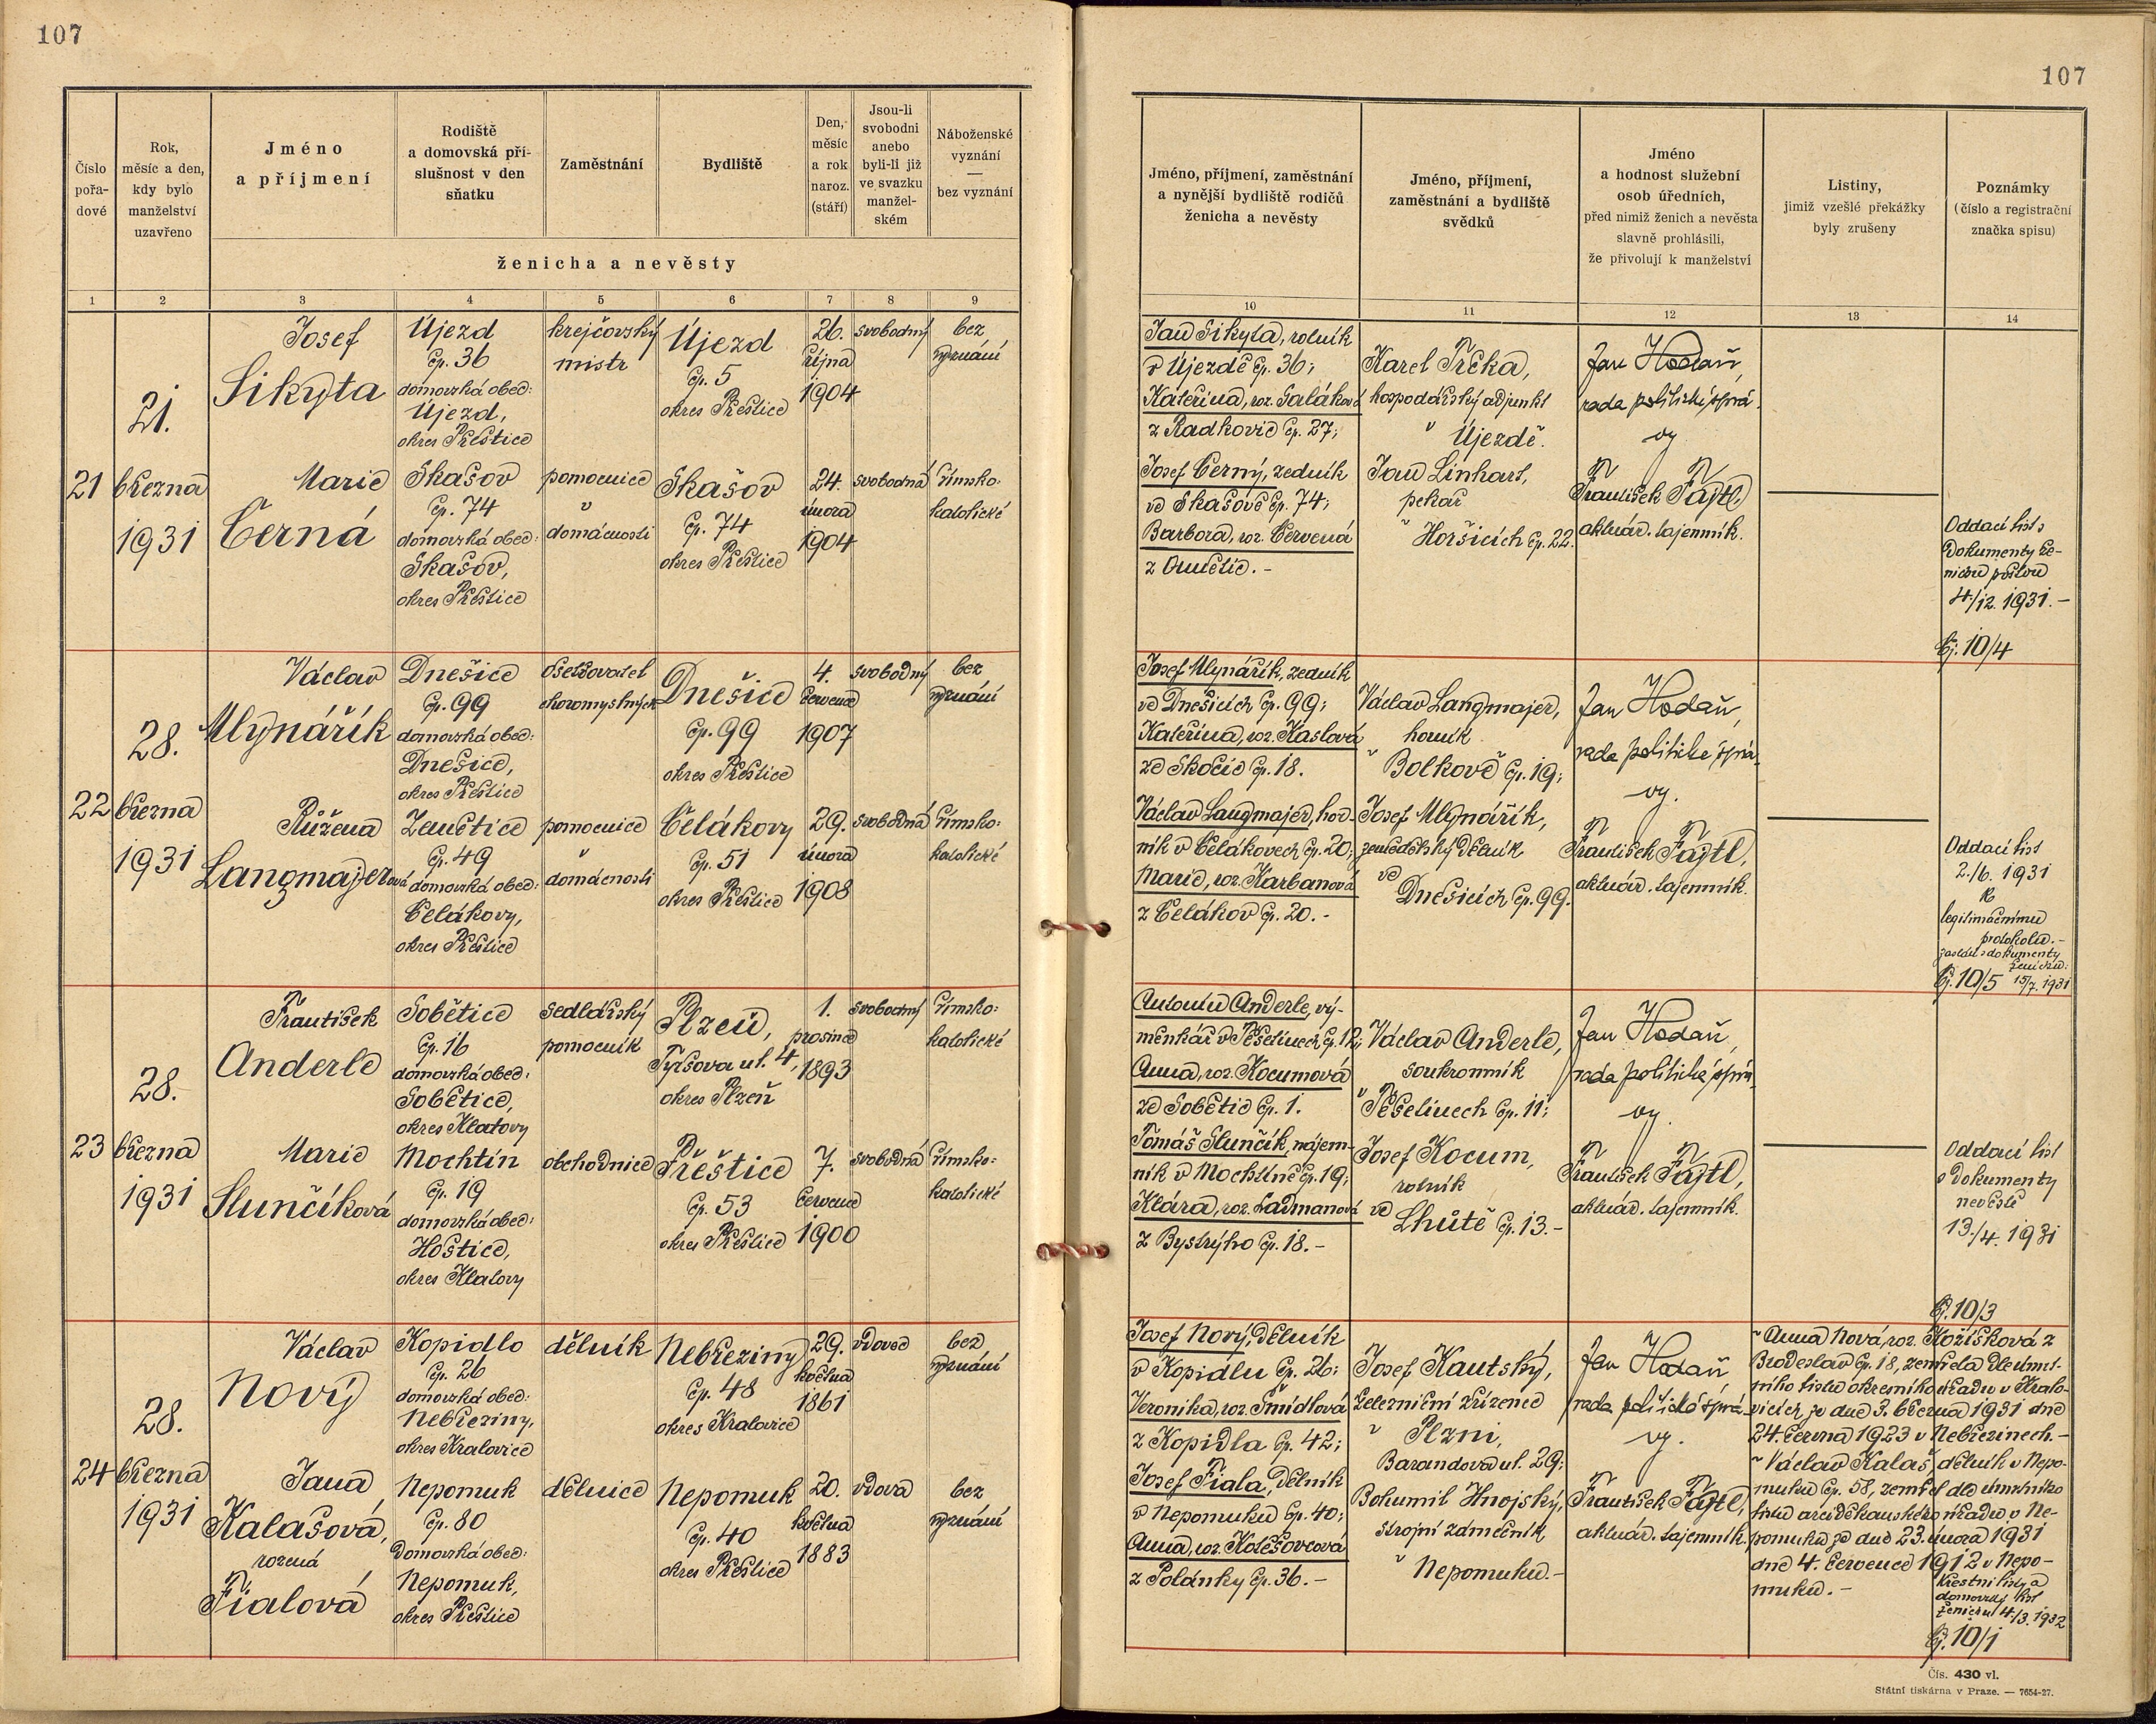 107
107
Číslo pořa-dové
Rok, měsíc a den, kdy bylo manželství uzavřeno
Jméno a příjmení
Rodiště a domovská pří-slušnost v den sňatku
Zaměstnání
Bydliště
Den, měsíc a rok naroz. (stáří)
Jsou-li svobodni anebo byli-li již ve svazku manžel-ském
Náboženské vyznání — bez vyznání
ženicha a nevěsty
1 2 3 4 5 6 7 8 9
Jméno, příjmení, zaměstnání a nynější bydliště rodičů ženicha a nevěsty
Jméno, příjmení, zaměstnání a bydliště svědků
Jméno a hodnost služební osob úředních, před nimiž ženich a nevěsta slavně prohlásili, že přivolují k manželství
Listiny, jimiž vzešlé překážky byly zrušeny
Poznámky (číslo a registrační značka spisu)
10 11 12 13 14
21
21.
března
1931
Josef
Sikyta
Újezd
čp. 36
domovská obec:
Újezd,
okres Přeštice
krejčovský
mistr
Újezd
čp. 5
okres Přeštice
26.
října
1904
svobodný
bez
vyznání
Marie
Černá
Skašov
čp. 74
domovská obec:
Skašov,
okres Přeštice
pomocnice
v
domácnosti
Skašov
čp. 74
okres Přeštice
24.
února
1904
svobodná
římsko-
katolické
Jan Sikyta, rolník
v Újezdě čp. 36;
Kateřina, roz. Saláková
z Radkovic čp. 27;
Josef Černý, zedník
ve Skašově čp. 74;
Barbora, roz. Červená
z Oumětic.-
Karel Trčka,
hospodářský adjunkt
v Újezdě.
Jan Linhart,
pekař
v Horšicích čp. 22.
Jan Hodaň,
rada politické sprá-
vy
František Fajtl,
aktuár. tajemník.
Oddací list s
dokumenty že-
nichu poštou
4./12. 1931.-
čj. 10/4
22
28.
března
1931
Václav
Mlynářík
Dnešice
čp. 99
domovská obec:
Dnešice,
okres Přeštice
ošetřovatel
choromyslných
Dnešice
čp. 99
okres Přeštice
4.
července
1907
svobodný
bez
vyznání
Růžena
Langmajerová
Zemětice
čp. 49
domovská obec:
Čelákovy,
okres Přeštice
pomocnice
v
domácnosti
Čelákovy
čp. 51
okres Přeštice
29.
února
1908
svobodná
římsko-
katolické
Josef Mlynářík, zedník
ve Dnešicích čp. 99;
Kateřina, roz. Kaslová
ze Skočic čp. 18.
Václav Langmajer, hor-
ník v Čelákovech čp. 20;
Marie, roz. Karbanová
z Čelákov čp. 20.-
Václav Langmajer,
horník
v Bolkově čp. 19;
Josef Mlynářík,
zemědělský dělník
ve
Dnešicích čp. 99.
Jan Hodaň,
rada politické sprá-
vy.
František Fajtl,
aktuár. tajemník.
Oddací list
2./6. 1931
k
legitimačnímu
protokolu.-
zaslán s dokumenty
ženichu:
čj. 10/5 15/7. 1931
23
28.
března
1931
František
Anderle
Sobětice
čp. 16
domovská obec:
Sobětice,
okres Klatovy
sedlářský
pomocník
Plzeň,
Tyršova ul. 4,
okres Plzeň
1.
prosince
1893
svobodný
římsko-
katolické
Marie
Slunčíková
Mochtín
čp. 19
domovská obec:
Hoštice,
okres Klatovy
obchodnice
Přeštice
čp. 53
okres Přeštice
7.
července
1900
svobodná
římsko-
katolické
Antonín Anderle, vý-
měnkář v Pěšetínech čp. 12;
Anna, roz. Kocumová
ze Sobětic čp. 1.
Tomáš Slunčík, nájem-
ník v Mochtíně čp. 19;
Klára, roz. Ladmanová
z Bystrýho čp. 18.-
Václav Anderle,
soukromník
v Pěšetínech čp. 11;
Josef Kocum,
rolník
ve
Lhůtě čp. 13.-
Jan Hodaň,
rada politické sprá-
vy.
František Fajtl,
aktuár. tajemník.
Oddací list
s dokumenty
nevěstě
13./4. 1931
čj. 10/3
24
28.
března
1931
Václav
Nový
Kopidlo
čp. 26
domovská obec:
Nebřeziny,
okres Kralovice
dělník
Nebřeziny
čp. 48
okres Kralovice
29.
května
1861
vdovec
bez
vyznání
Jana
Kalašová,
rozená
Fialová
Nepomuk
čp. 80
domovská obec:
Nepomuk,
okres Přeštice
dělnice
Nepomuk
čp. 40
okres Přeštice
20.
května
1883
vdova
bez
vyznání
Josef Nový, dělník
v Kopidlu čp. 26;
Veronika, roz. Šmídlová
z Kopidla čp. 42;
Josef Fiala, dělník
v Nepomuku čp. 40;
Anna, roz. Kolešovcová
z Polánky čp. 36.-
Josef Kautský,
železniční zřízenec
v Plzni,
Barandova ul. 29;
Bohumil Hnojský,
strojní zámečník
v Nepomuku.-
Jan Hodaň
rada politické sprá-
vy.
František Fajtl,
aktuár. tajemník.
Anna Nová, roz. Kožíšková z
Brodeslav čp. 18, zemřela dle úmrt-
ního listu okresního úřadu v Kralo-
vicích ze dne 3. března 1931 dne
24. června 1923 v Nebřezinech.-
Václav Kalaš, dělník v Nepo-
muku čp. 58, zemřel dle úmrtního
listu arciděkanského úřadu v Ne-
pomuku ze dne 23. února 1931
dne 4. července 1912 v Nepo-
muku.-
Křestní listy a
domovský list
ženichu 4/3. 1932
čj. 10/1
Čís. 430 vl.
Státní tiskárna v Praze. — 7654-27.